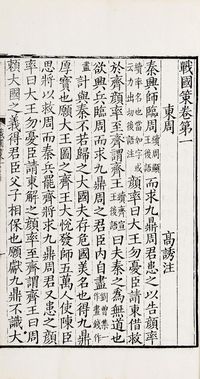 戰國策卷第一
東周　高誘注
秦興師臨周續周顯王後語而求九鼎周君患之以告顏率
顏率曰大王勿憂臣請東借救
於齊顏率至齊謂齊王續齊宣王後語曰夫秦之為無道也
欲興兵臨周而求九鼎周之君臣內自盡
計與秦不若歸之大國夫存危國美名也得九鼎
厚寶也願大王圖之齊王大悅發師五萬人使陳臣
思將以救周而秦兵罷齊將求九鼎周君又患之顏
率曰大王勿憂臣請東解之顏率至齊謂齊王曰周
賴大國之義得君臣父子相保也願獻九鼎不識大